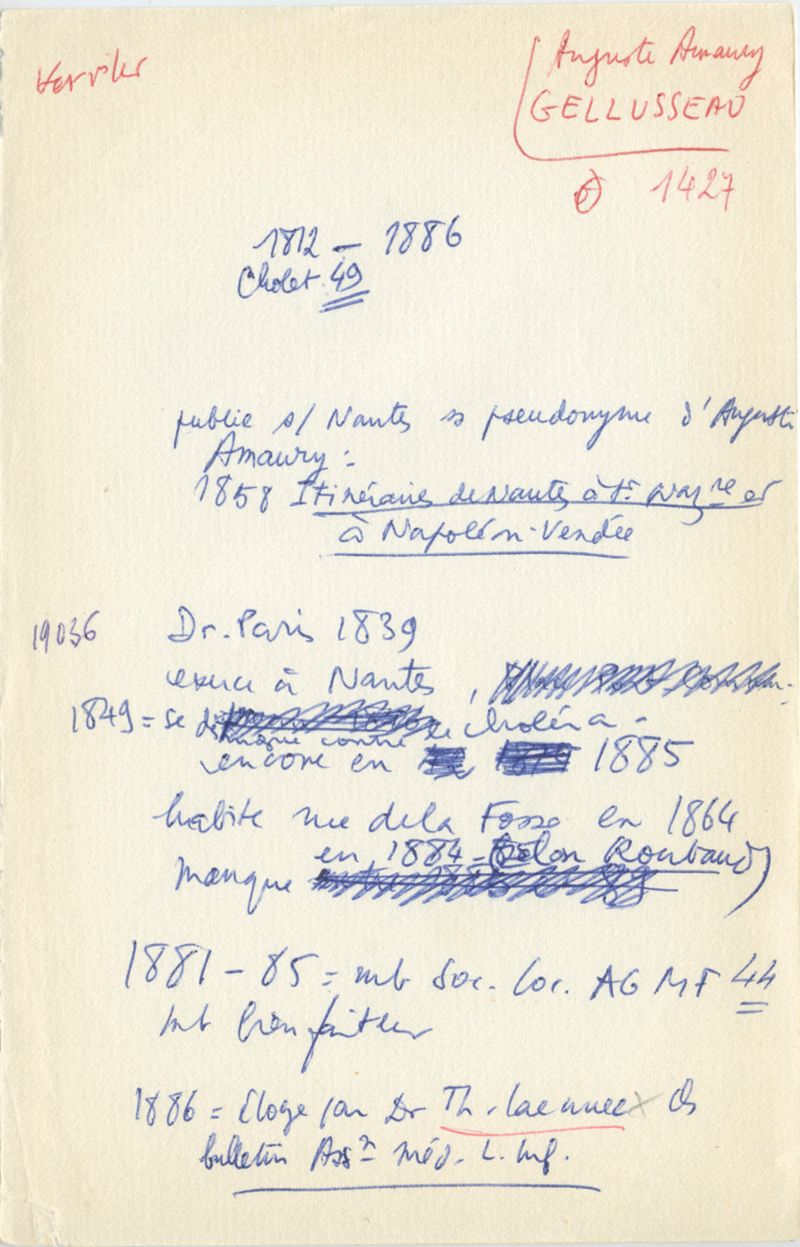 Auguste Amaury
GELLUSSEAU
1427
1812 - 1886
Cholet 49
publie s/ Nantes ss pseudonyme d'Auguste
Amaury :
1858 Itinéraires de Nantes à St Nazre et
à Napoléon-Vendée
19036
Dr. Paris 1839
exerce à Nantes,
1849 = se distingue contre le choléra -
encore en 1885
habite rue de la Fosse en 1864
manque en 1884-85 (selon Roubaud)
1881 - 85 = mb Soc. loc. AG MF 44
mb bienfaiteur
1886 = Eloge par Dr Th. Laennec x ds
bulletin Assn Méd. L. Inf.